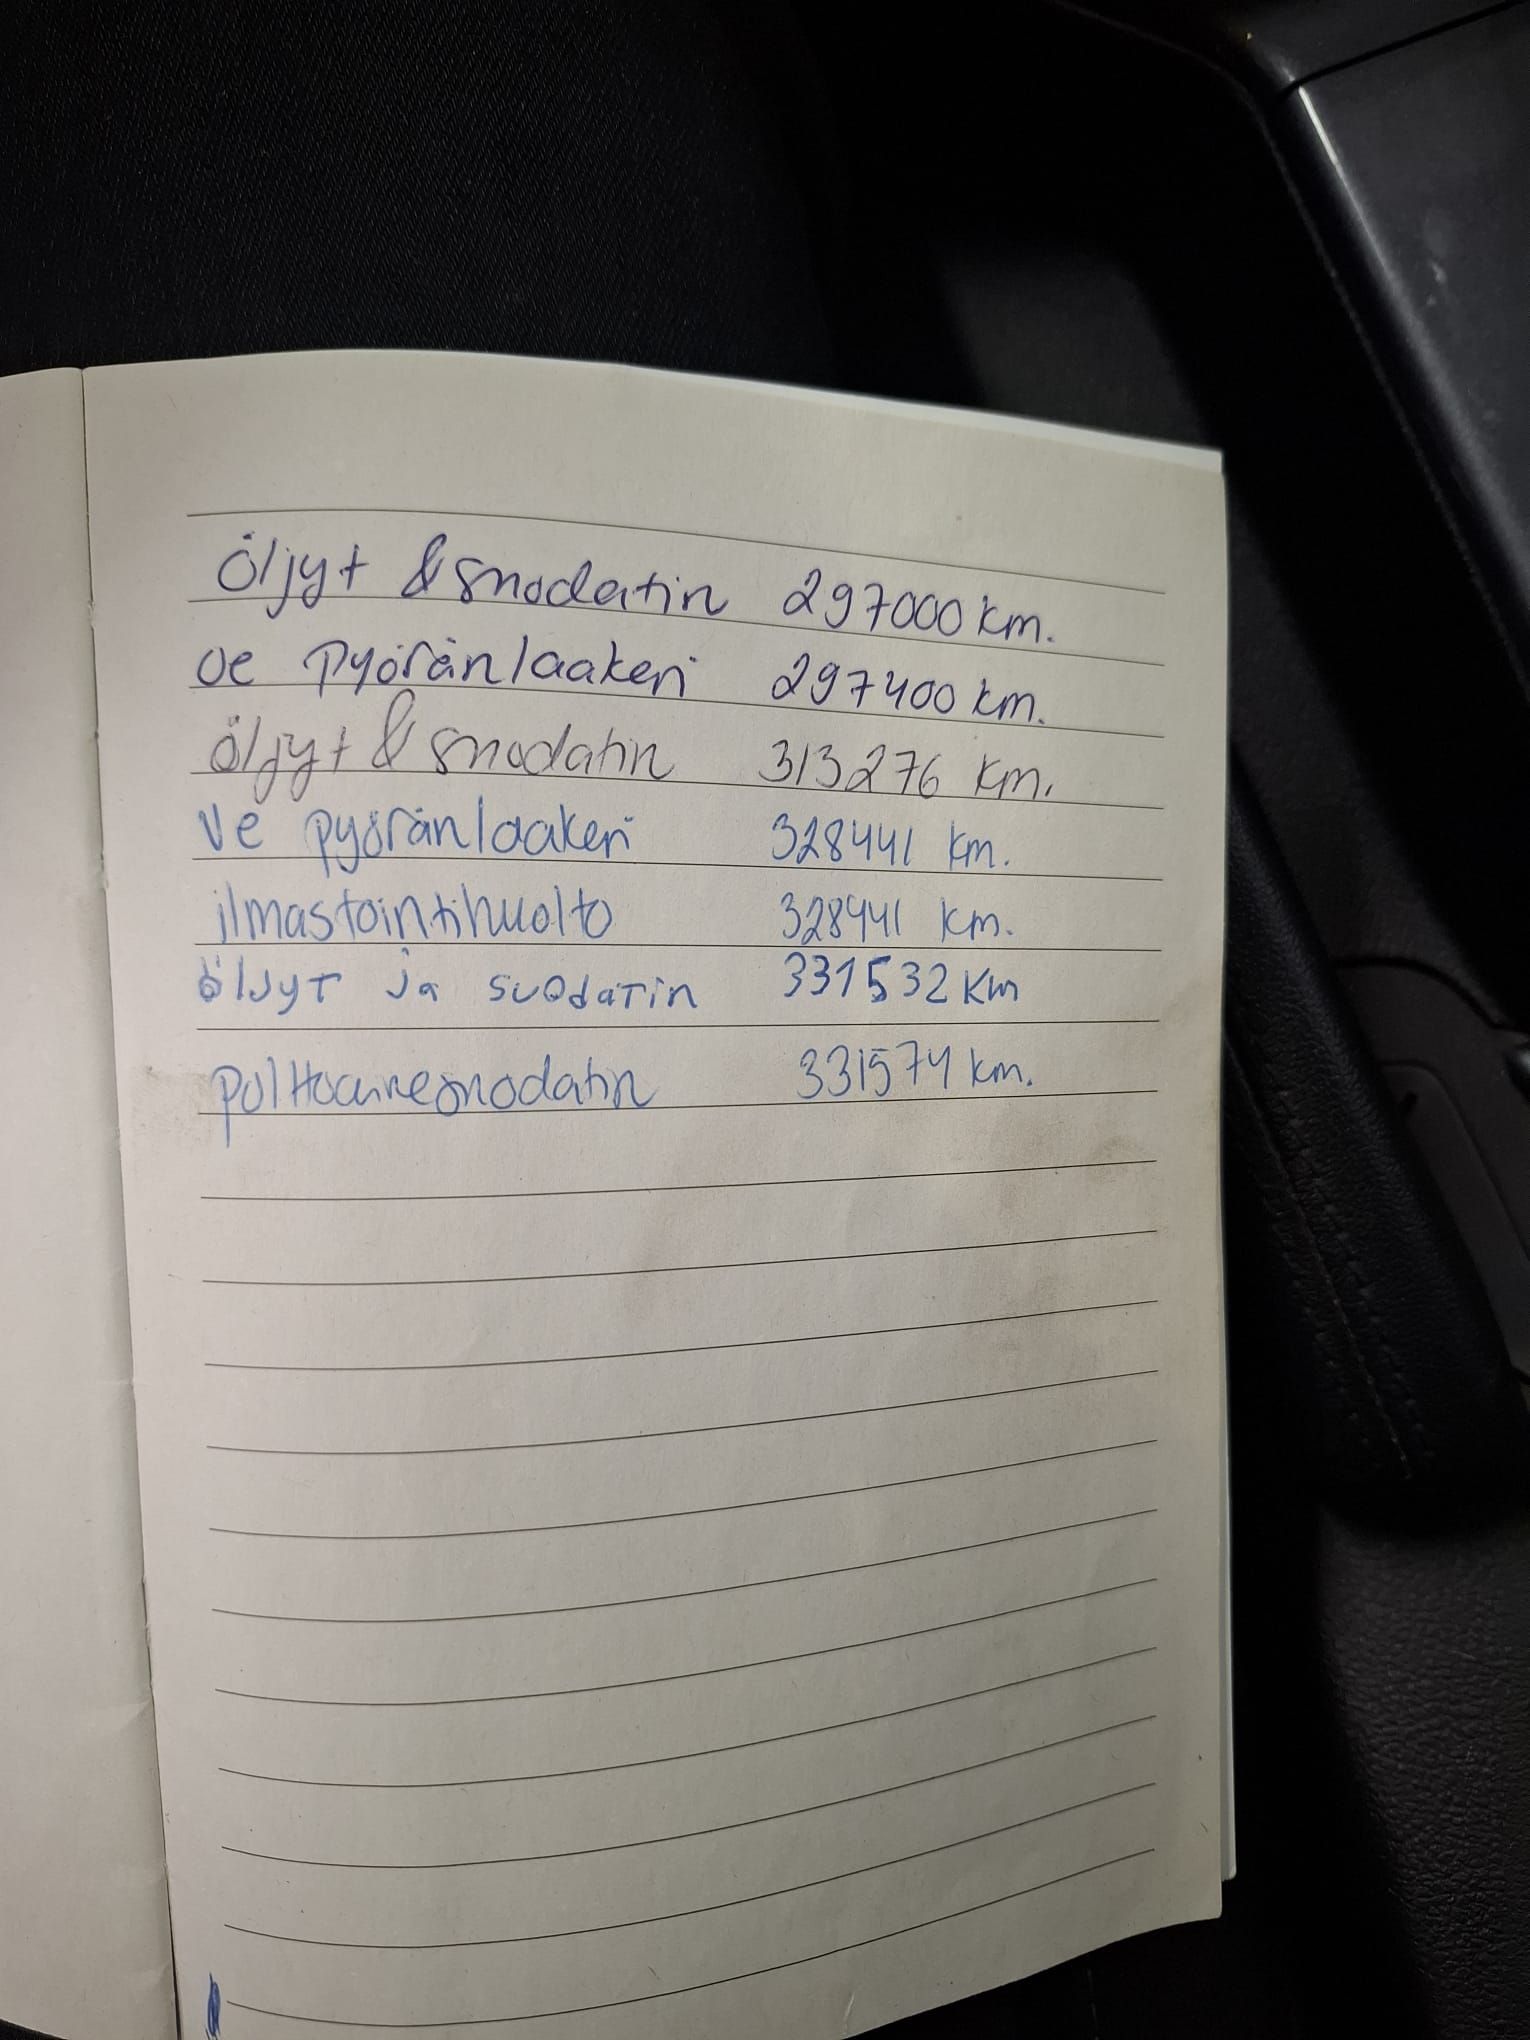 Öljyt & suodatin 297000 km.
oe pyöränlaakeri 297400 km.
öljyt & suodatin 313276 km.
ve pyöränlaakeri 328441 km.
ilmastointihuolto 328441 km.
öljyt ja suodatin 331532 km
polttoainesuodatin 331574 km.